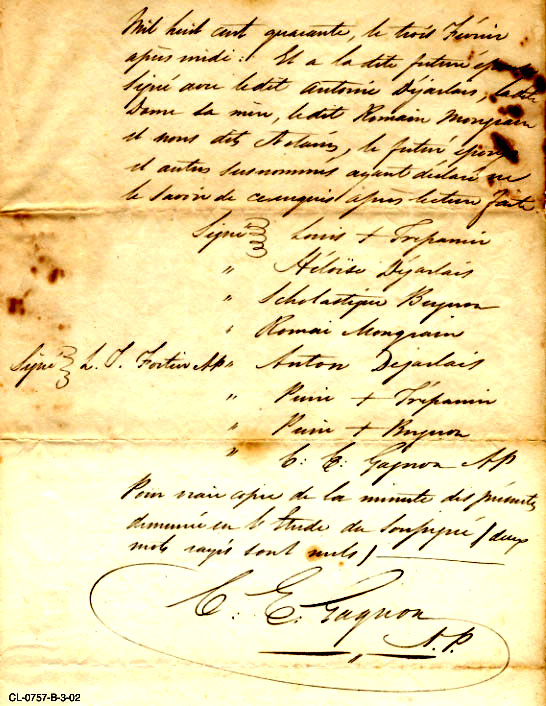 Mil huit cent quarante, le trois Février
après midi: Et a la dite future épouse
Signé avec ledit Antoine Déjarlais, ladite
Dame sa mère, ledit Romain Mongrain
et nous dits Notaires, le futur époux
et autres susnommés ayant déclaré ne
le savoir de ce enquis après lecture faite
Signé Louis + Trépanier
" Héloïse Déjarlais
" Scholastique Bergnon
" Romai Mongrain
Signé L. S. Fortier NP " Anton Dejarlais
" Pierre + Trépanier
" Pierre + Bergnon
" C: E: Gagnon N.P
Pour vraie copie de la minute des présentes
demeurée en l'Etude du Soussigné / deux
mots rayés sont nuls /
C. E. Gagnon
N.P.
CL-0757-B-3-02